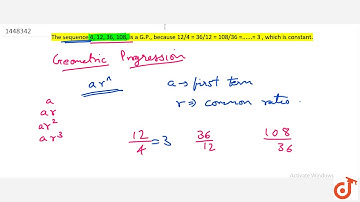 1448342
The sequence 4, 12, 36, 108, is a G.P., because 12/4 = 36/12 = 108/36 =......= 3 , which is constant.
Geometric Progression
ar^n a → first term
r ⇒ common ratio .
a
ar
ar²
ar³
12/4 = 3 36/12 108/36
Activate Windows